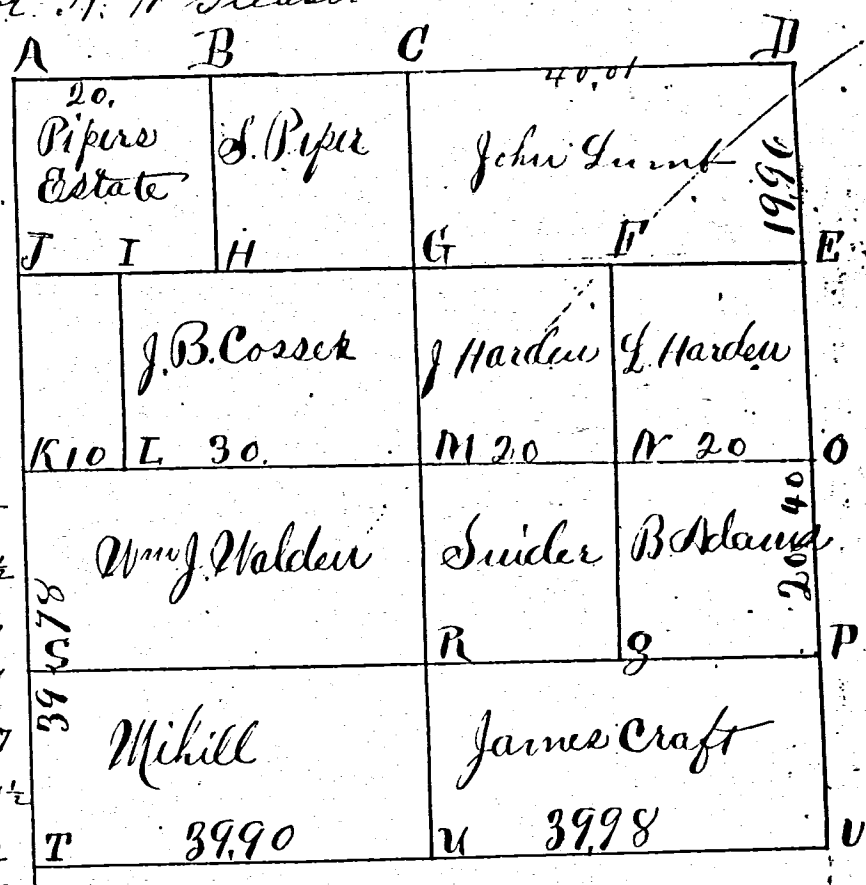 A B C D
20.
Pipers
Estate
S. Piper
40,01
John Lumt
19,96
J I H G F E
J.B. Cossek
J Harden
L Harden
K 10 L 30. M 20 N 20 O
Wm J. Walden
Snider
B Adams
20 40
39 78
S R 8 P
Mihill
James Craft
T 39,90 U 39,98 V